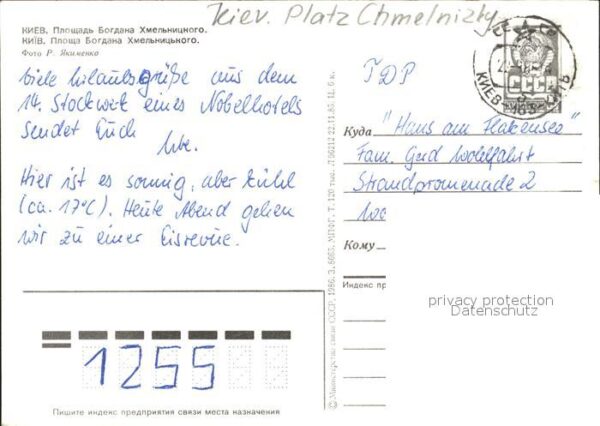 Kiev. Platz Chmelnizky
КИЕВ. Площадь Богдана Хмельницкого.
КИЇВ. Площа Богдана Хмельницького.
Фото Р. Якименко
Viele Urlaubsgrüße aus dem
14. Stockwerk eines Nobelhotels
sendet Euch
Uwe.
Hier ist es sonnig, aber kühl
(ca. 17°C). Heute Abend gehen
wir zu einer Eisrevue.
1255
Пишите индекс предприятия связи места назначения
© Министерство связи СССР. 1986. З. 8065. МПФГ. Т. 120 тыс.
22.11.85. Ц. 6 к.
СССР
КИЕВ
ГДР
Куда "Haus am Flakensee"
Fam. Gerd Wohlfahrt
Strandpromenade 2
Кому
Индекс пр
privacy protection
Datenschutz